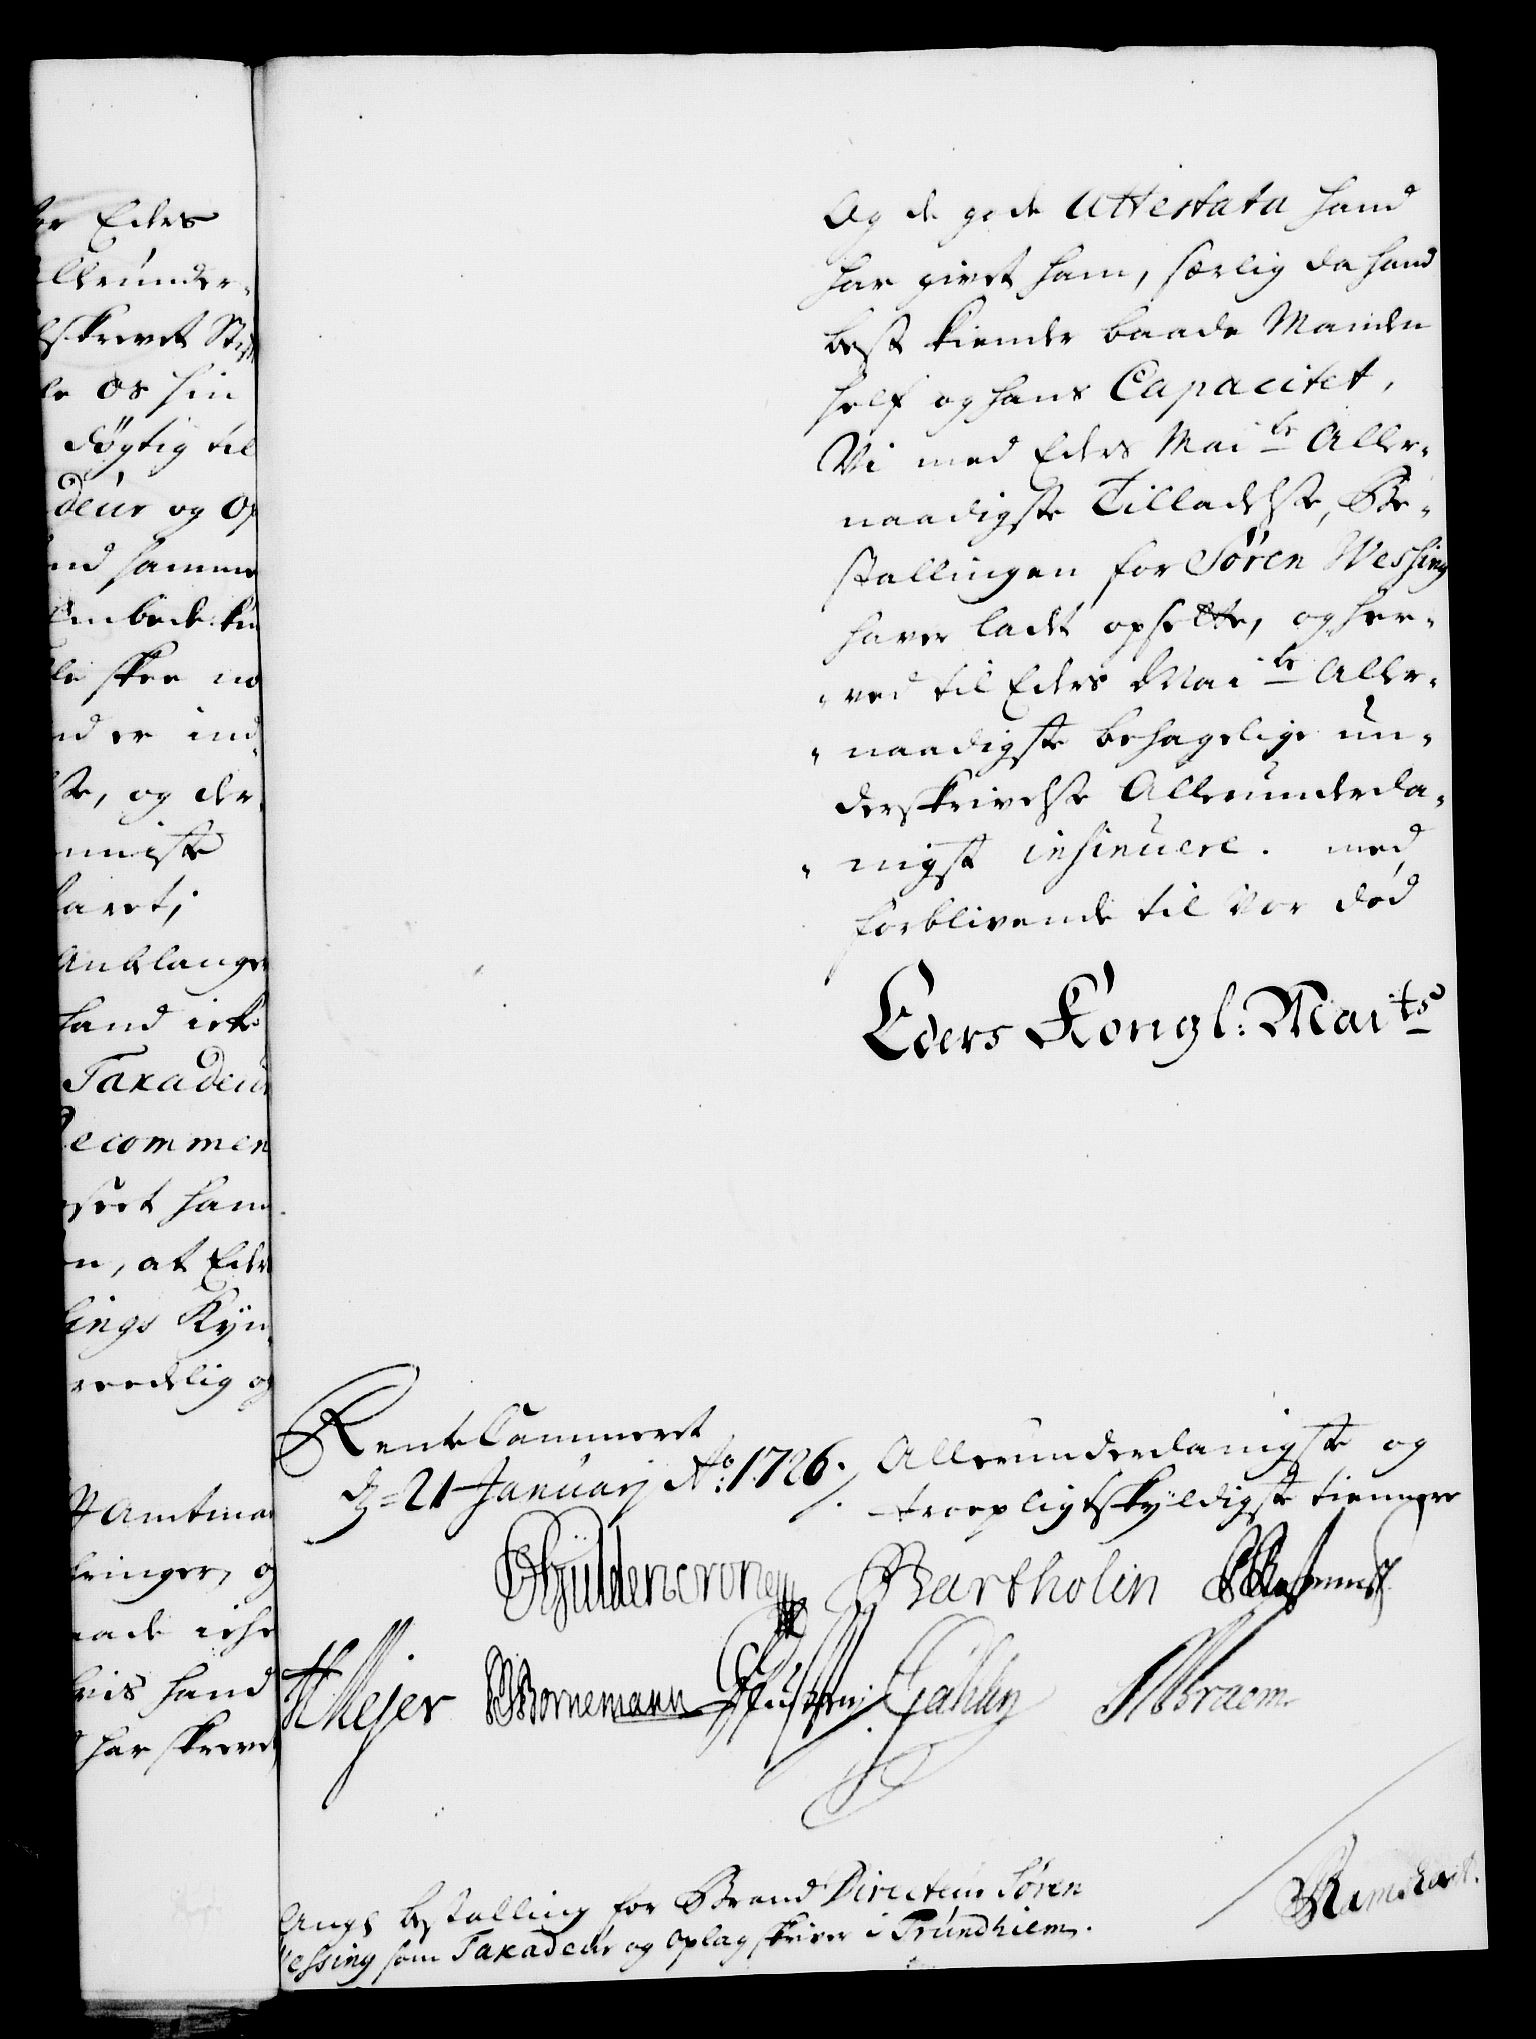 er Eders
llerunder-
skrevet Stif
le os sin
døgtig til
deur og Op
nd samme
Embede ku
le skee no
nd er ind-
te, og der
nniste
aret;
Anblanger
hand icke
Taxadeur
Recommen
sert ham
n, at Eders
lings Kyn-
reedelig og
Amtman
bringer, og
aade icke
vis hand
har skrevet
Og de gode Attestata hand
har givet ham, særlig da hand
best kiender baade Manden
self og hans Capacitet,
Vi med Eders Maits Aller-
naadigste Tilladelse, Be-
stallingen for Søren Wessing
haver ladt opsette, og her-
ved til Eders Maits Aller-
naadigste behagelige un-
derskrivelse Allerunderda-
nigst insinuere. med
forblivende til vor død
Eders Kongl: Maits
RenteCammeret
d 21 Januarj Ao 1726.
Allerunderdanigste og
troepligtskyldigste tiennere
Güldencrone
Bartholin
HMejer
Bornemann
Abraem
Ang: bestalling for Brand Directeur Søren
Wessing som Taxadeur og Oplagskriver i Trundhiem.
Ramshart.